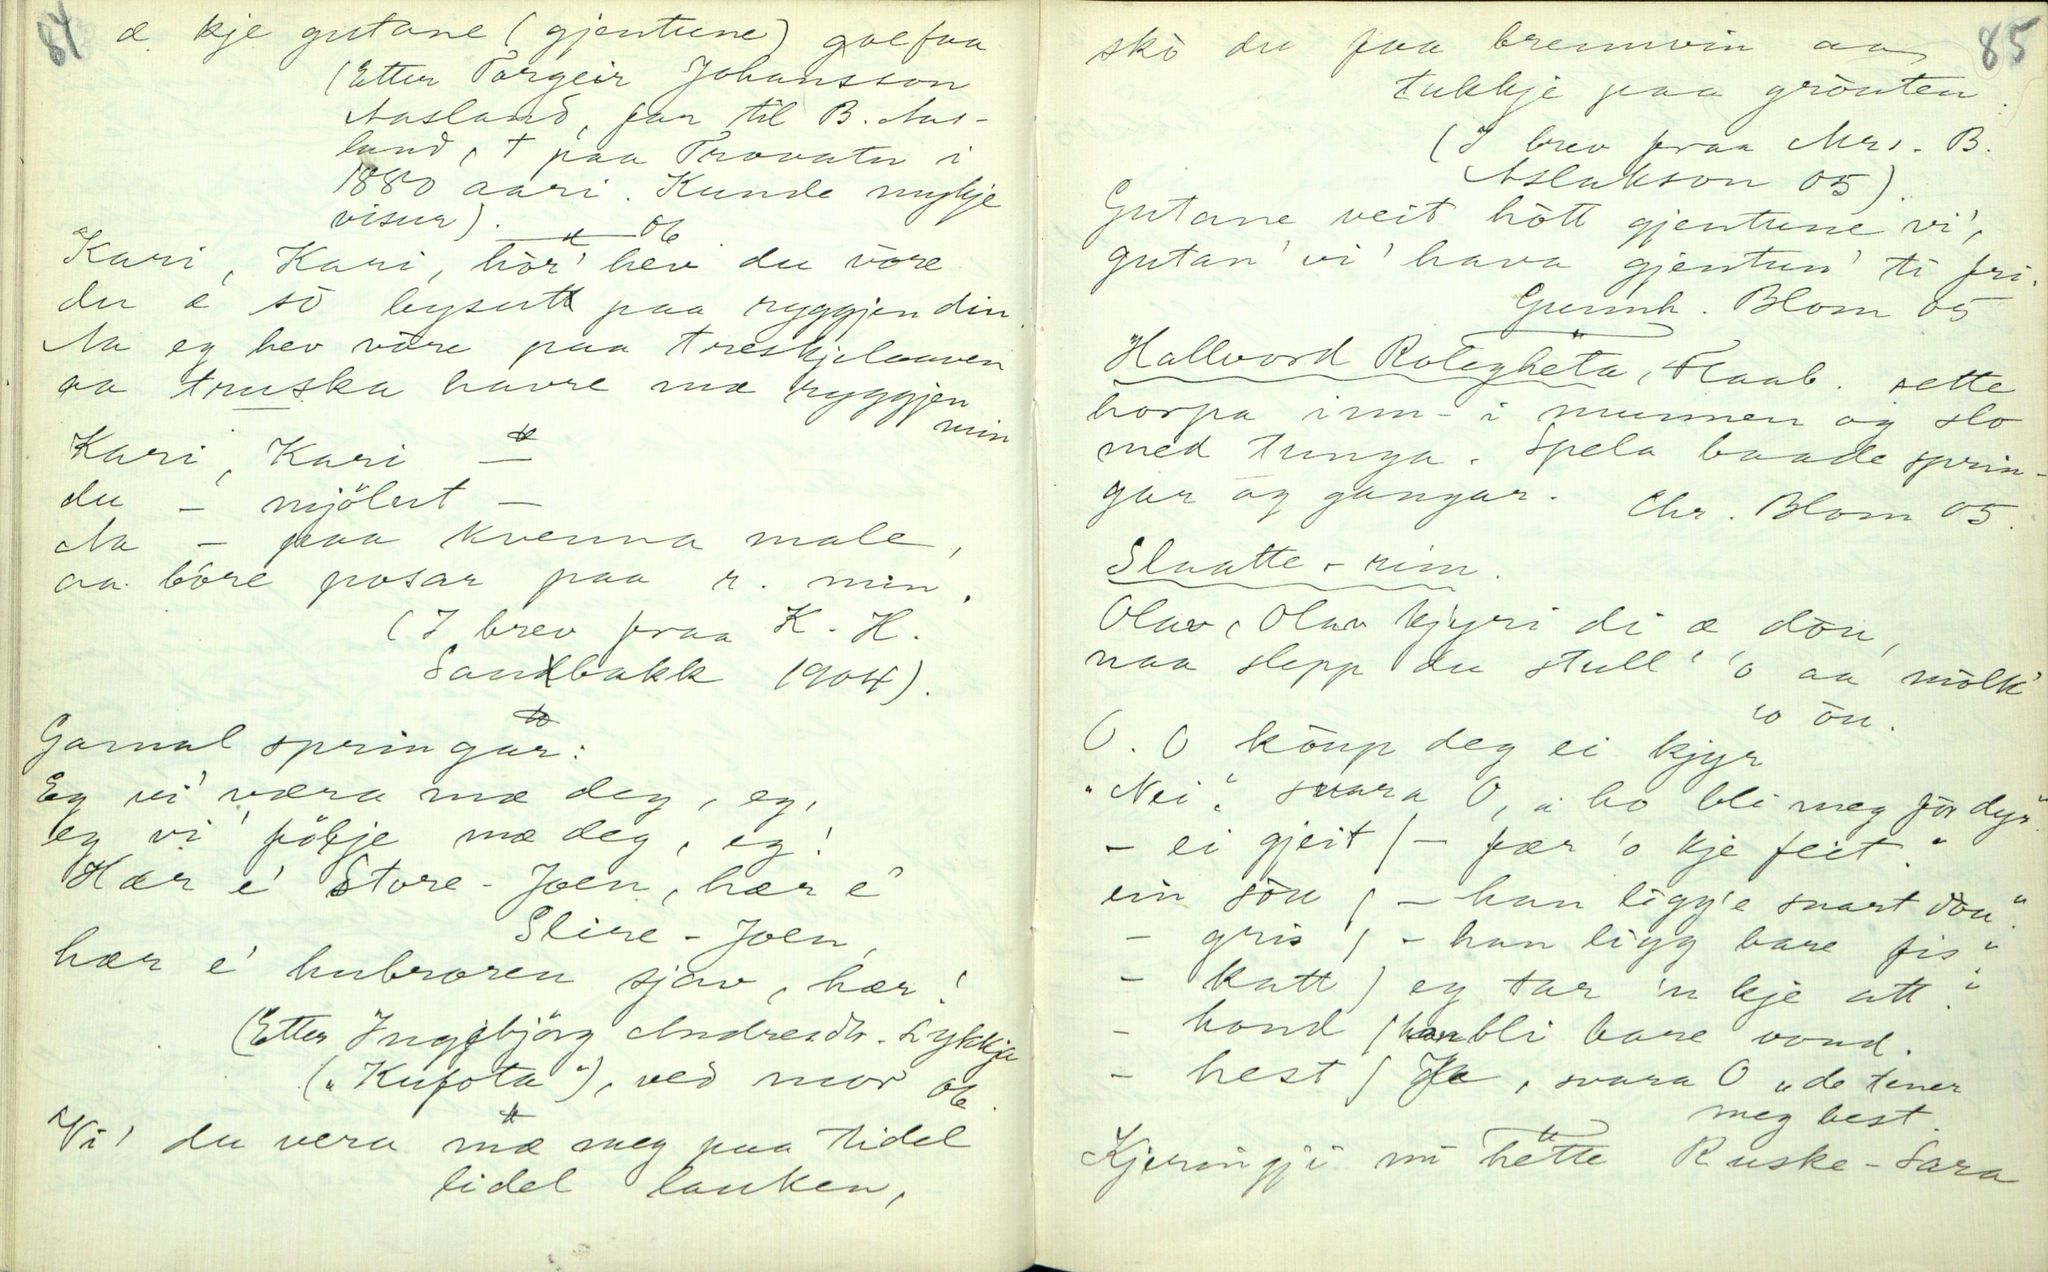 84
æ kje gutane (gjentune) goe faa
(Etter Targeir Johansson
Aasland, far til B. Aas-
land, † paa Trovatn i
1880 aari. Kunde mykje
visur). 06
"Kari, Kari, hòr' hev du vòre
du æ' sò bysutt paa ryggjen din.
Aa eg hev vòre paa treskjelaaven
aa truska havre mæ ryggjen
min
Kari, Kari —
du — mjölut —
Aa — paa kvenna male,
aa bòre posar paa r. min.
(I brev fraa K. H.
Sandbakk 1904).
Gamal springar:
Eg vi' væra mæ deg, eg,
eg vi' följe mæ deg, eg!
Hær e' Store-Joen, hær e'
Slire-Joen,
hær e' hubroren sjøv, hær!
(Etter Ingebjörg Andresdtr. Lykkja
("Kufota"), ved mor 06.
"Vi' du vera mæ meg paa tidel
lidel lauken,
85
skò du faa brennvin aa
tukkje paa grònten.
(I brev fraa Mrs. B.
Aslakson 05)
Gutane veit hòtt gjentune vi',
gutan' vi' hava gjentun' ti fri.
Gunnh. Blom 05
"Hallvord Roleghèta, Flaab. sette
horpa inn i munnen og slo
med tunga. Spela baade sprin-
gar og gangar. Chr. Blom 05.
Slaatte-rim.
Olav, Olav kjyri di æ dòu,
naa slepp du stull' 'o aa mòlk'
'o òu.
O. O kòup deg ei kjyr
"Nei", svara O, "ho bli meg fòr dyr".
- ei gjeit / - fær 'o kje feit."
ein sòu / - han ligg'e snart dòu".
- gris / - han ligg bare fis"
- katt / eg tar 'n kje att."
- hond / han bli bare vond.
- hest / Ja, svara O "de tener
meg best.
Kjeringji mi hètte Ruske-Sara